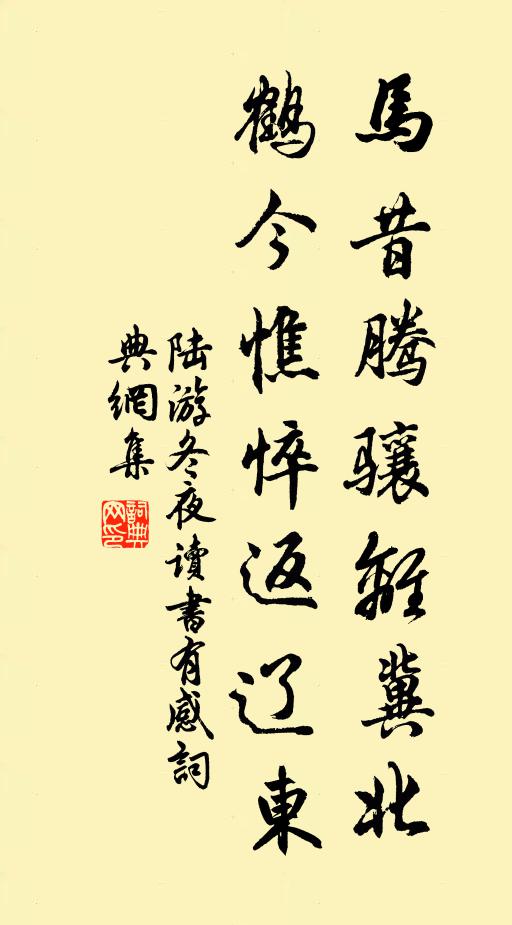 馬昔騰驤離冀北
鶴今憔悴返辽東
陆游冬夜讀書有感詞
典網集
詞典网印